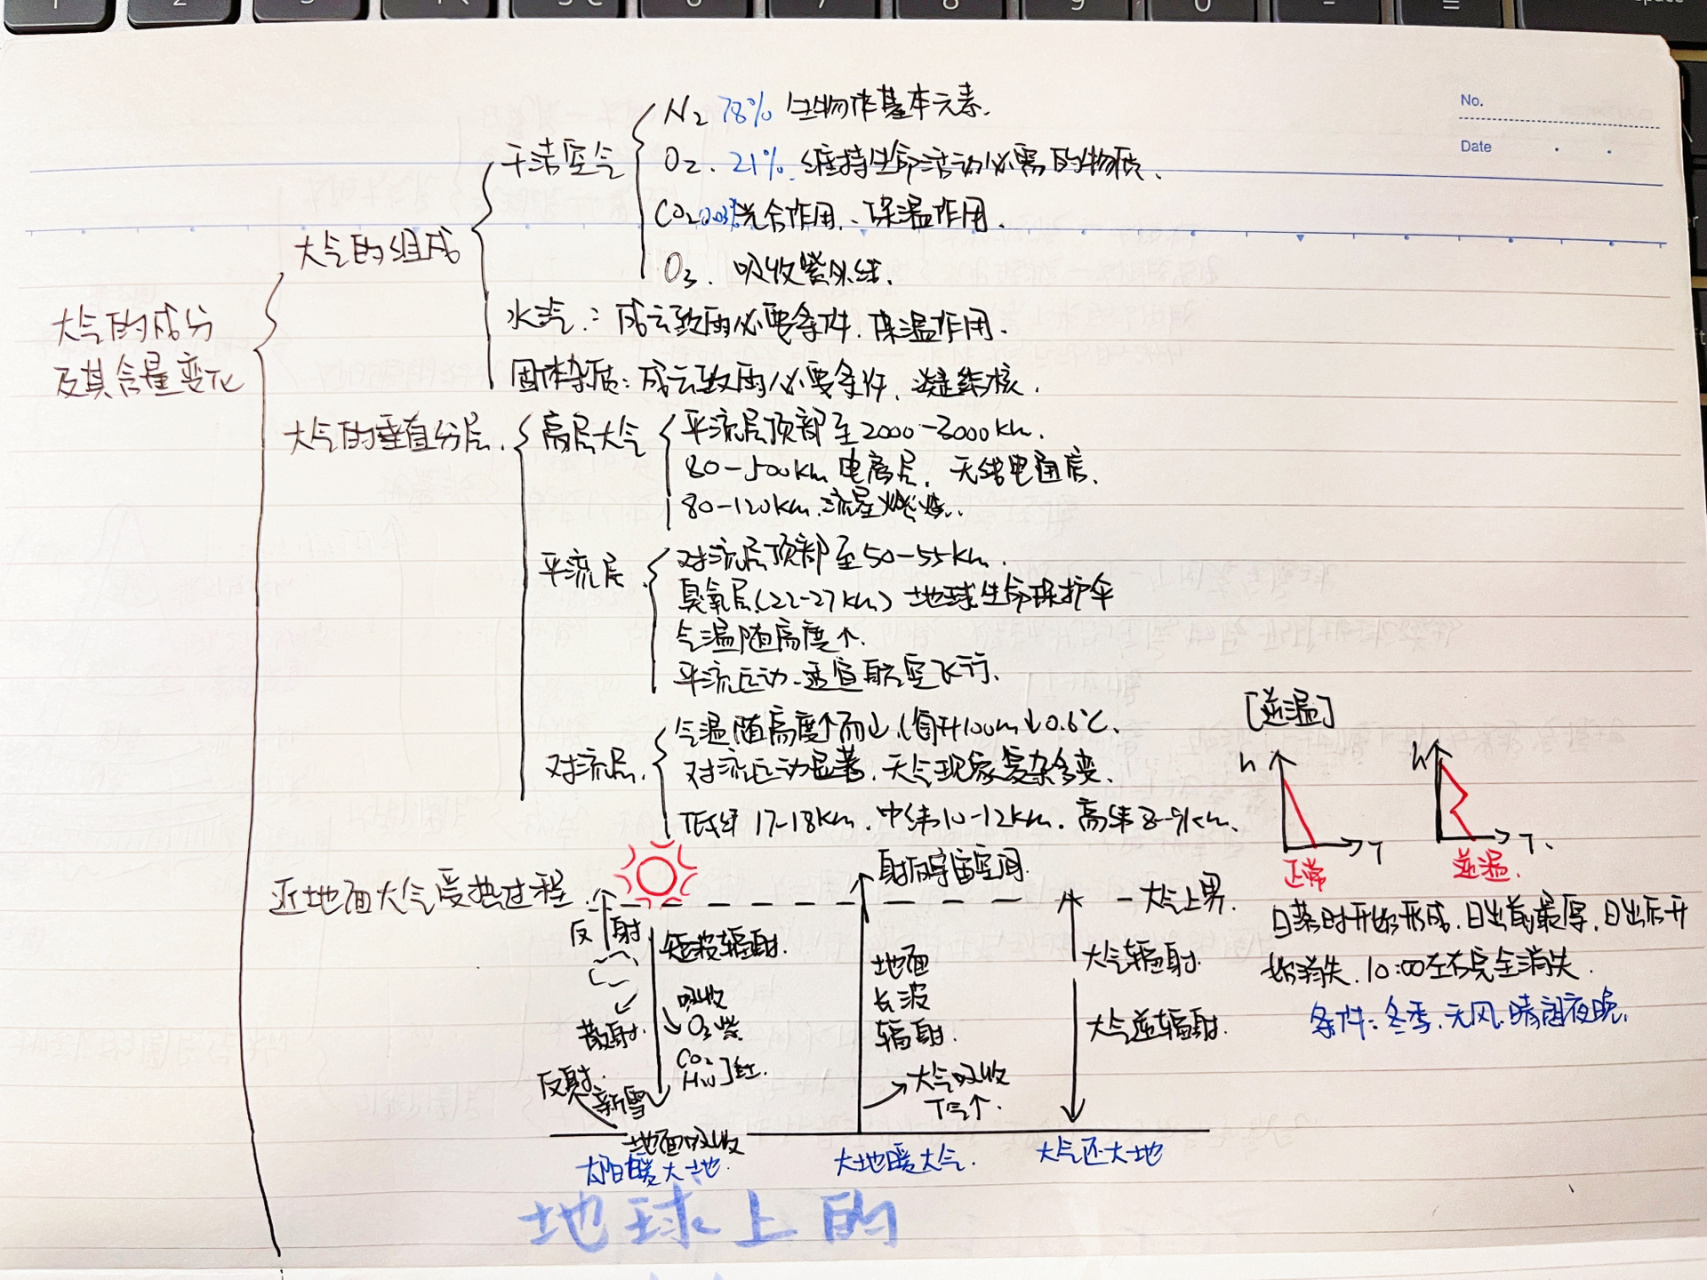 No.
Date
大气的成分
及其含量变化
大气的组成
干洁空气
N2 78% 生物体基本元素.
O2. 21%. 维持生命活动必需的物质.
CO2 0.03% 光合作用. 保温作用.
O3. 吸收紫外线.
水汽: 成云致雨必要条件. 保温作用.
固体杂质: 成云致雨必要条件. 凝结核.
大气的垂直分层.
高层大气
平流层顶部至2000-3000km.
80-500km 电离层. 无线电通信.
80-120km. 流星燃烧.
平流层.
对流层顶部至50-55km.
臭氧层(22-27km) 地球生命保护伞
气温随高度↑.
平流运动-适宜航空飞行.
对流层.
气温随高度↑而↓(每升100m↓0.6℃.
对流运动显著. 天气现象复杂多变.
低纬17-18km. 中纬10-12km. 高纬8-9km.
[逆温]
h T
正常
h T.
逆温.
日落时开始形成. 日出前最厚. 日出后开
始消失. 10:00左右完全消失.
条件: 冬季. 无风. 晴朗夜晚.
近地面大气受热过程.
射向宇宙空间.
大气上界.
反射
短波辐射.
散射.
吸收
O3 紫.
CO2
H2O ]红.
反射.
新雪
地面吸收
地面
长波
辐射.
大气吸收
T气↑.
大气辐射.
大气逆辐射.
太阳暖大地.
大地暖大气.
大气还大地
地球上的